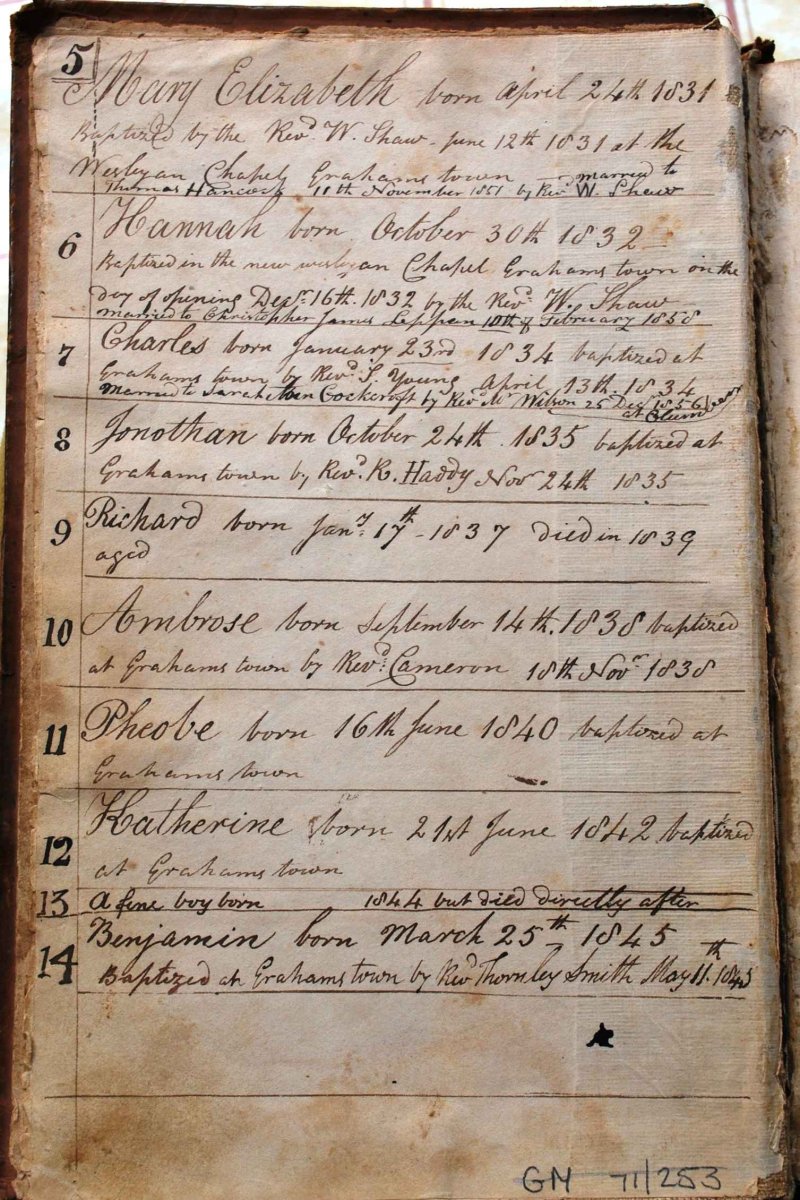 5
Mary Elizabeth born April 24th 1831
Baptized by the Revd. W. Shaw - June 12th 1831 at the
Wesleyan Chapel Grahams town - married to
Thomas Hancock 11th November 1851 by Revd W. Shaw
6
Hannah born October 30th 1832
Baptized in the new wesleyan Chapel Grahams town on the
day of opening Decr. 16th. 1832 by the Revd. W. Shaw
Married to Christopher James Leppan 10th of February 1858
7
Charles born January 23rd 1834 baptized at
Grahams town by Revd. S. Young April 13th. 1834
Married to Sarah Cockcroft by Revd Mr Wilson 25 Decr 1856
at
8
Jonothan born October 24th 1835 baptized at
Grahams town by Revd. R. Haddy Novr 24th 1835
9
Richard born Jany. 17th - 1837 died in 1839
aged
10
Ambrose born September 14th. 1838 baptized
at Grahams town by Revd. Cameron 18th Novr 1838
11
Pheobe born 16th June 1840 baptized at
Grahams town
12
Katherine born 21st June 1842 baptized
at Grahams town
13 A fine boy born 1844 but died directly after
14
Benjamin born March 25th 1845
Baptized at Grahams town by Revd Thornley Smith May 11th. 1845
GM 71/253